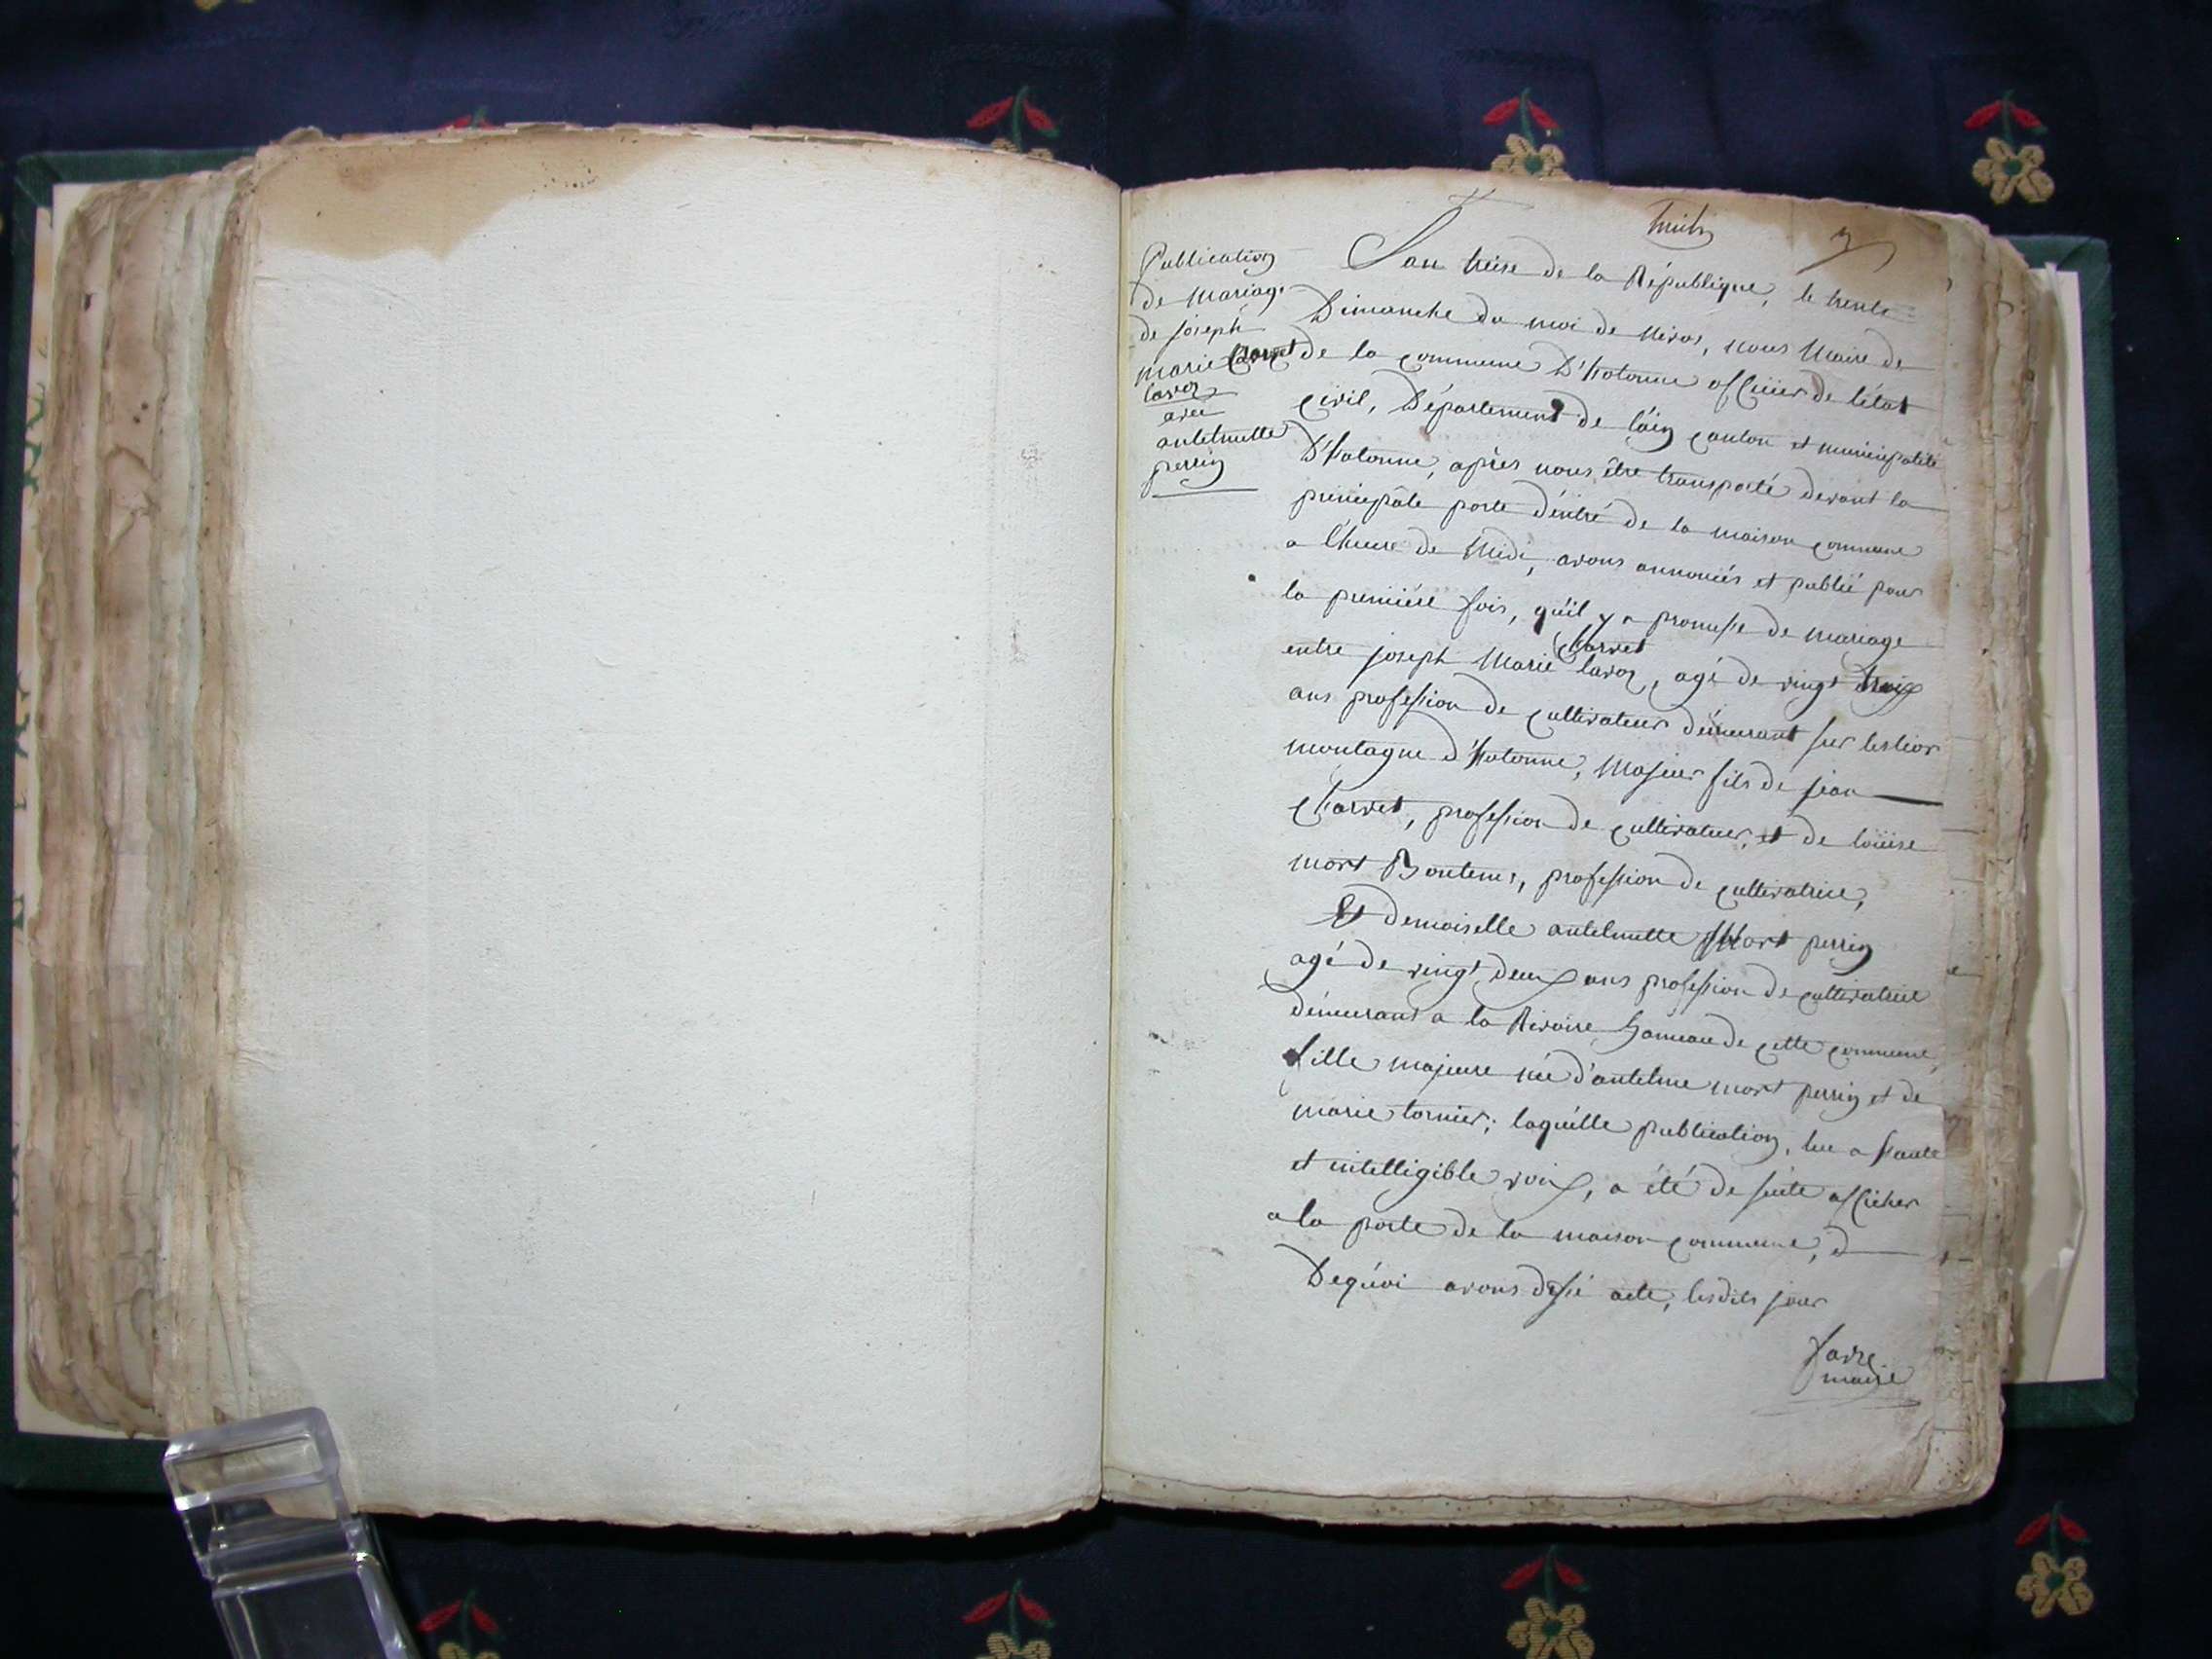 Publication
de mariage
de joseph
marie Charvet
lavoz
avec
antelmette
perrin
L'an treise de la République, le trente
Dimanche du moi de Nivos, nous Maire de
de la commune D'hotonne officier de l'état
civil, Département de l'áin canton et municipalité
D'hotonne, aprés nous être transporté devant la
principâle porte d'éntré de la maison commune
a l'heure de Midi, avons annoncés et publié pour
la premiére fois, qu'il y a promesse de mariage
Charvet
entre joseph Marie lavoz, agé de vingt trois
ans profession de cultivateur démeurant sur
montagne d'hotonne, Majeur fils de jean
Charvet, profession de cultivateur, et de loüise
mort Bontems, profession de cultivatrice,
Et demoiselle antelmette Mort perrin
agé de vingt deux ans profession de cultivatrice
démeurant a la Rivoire hameau de cette commune,
fille majeure née d'antelme mort perrin et de
marie tornier; laquélle publication, lue a haute
et intelligible voix, a été de suite afficher
a la porte de la maison commune, d
Dequoi avons dressé acte, lesdits jour
favre
maire